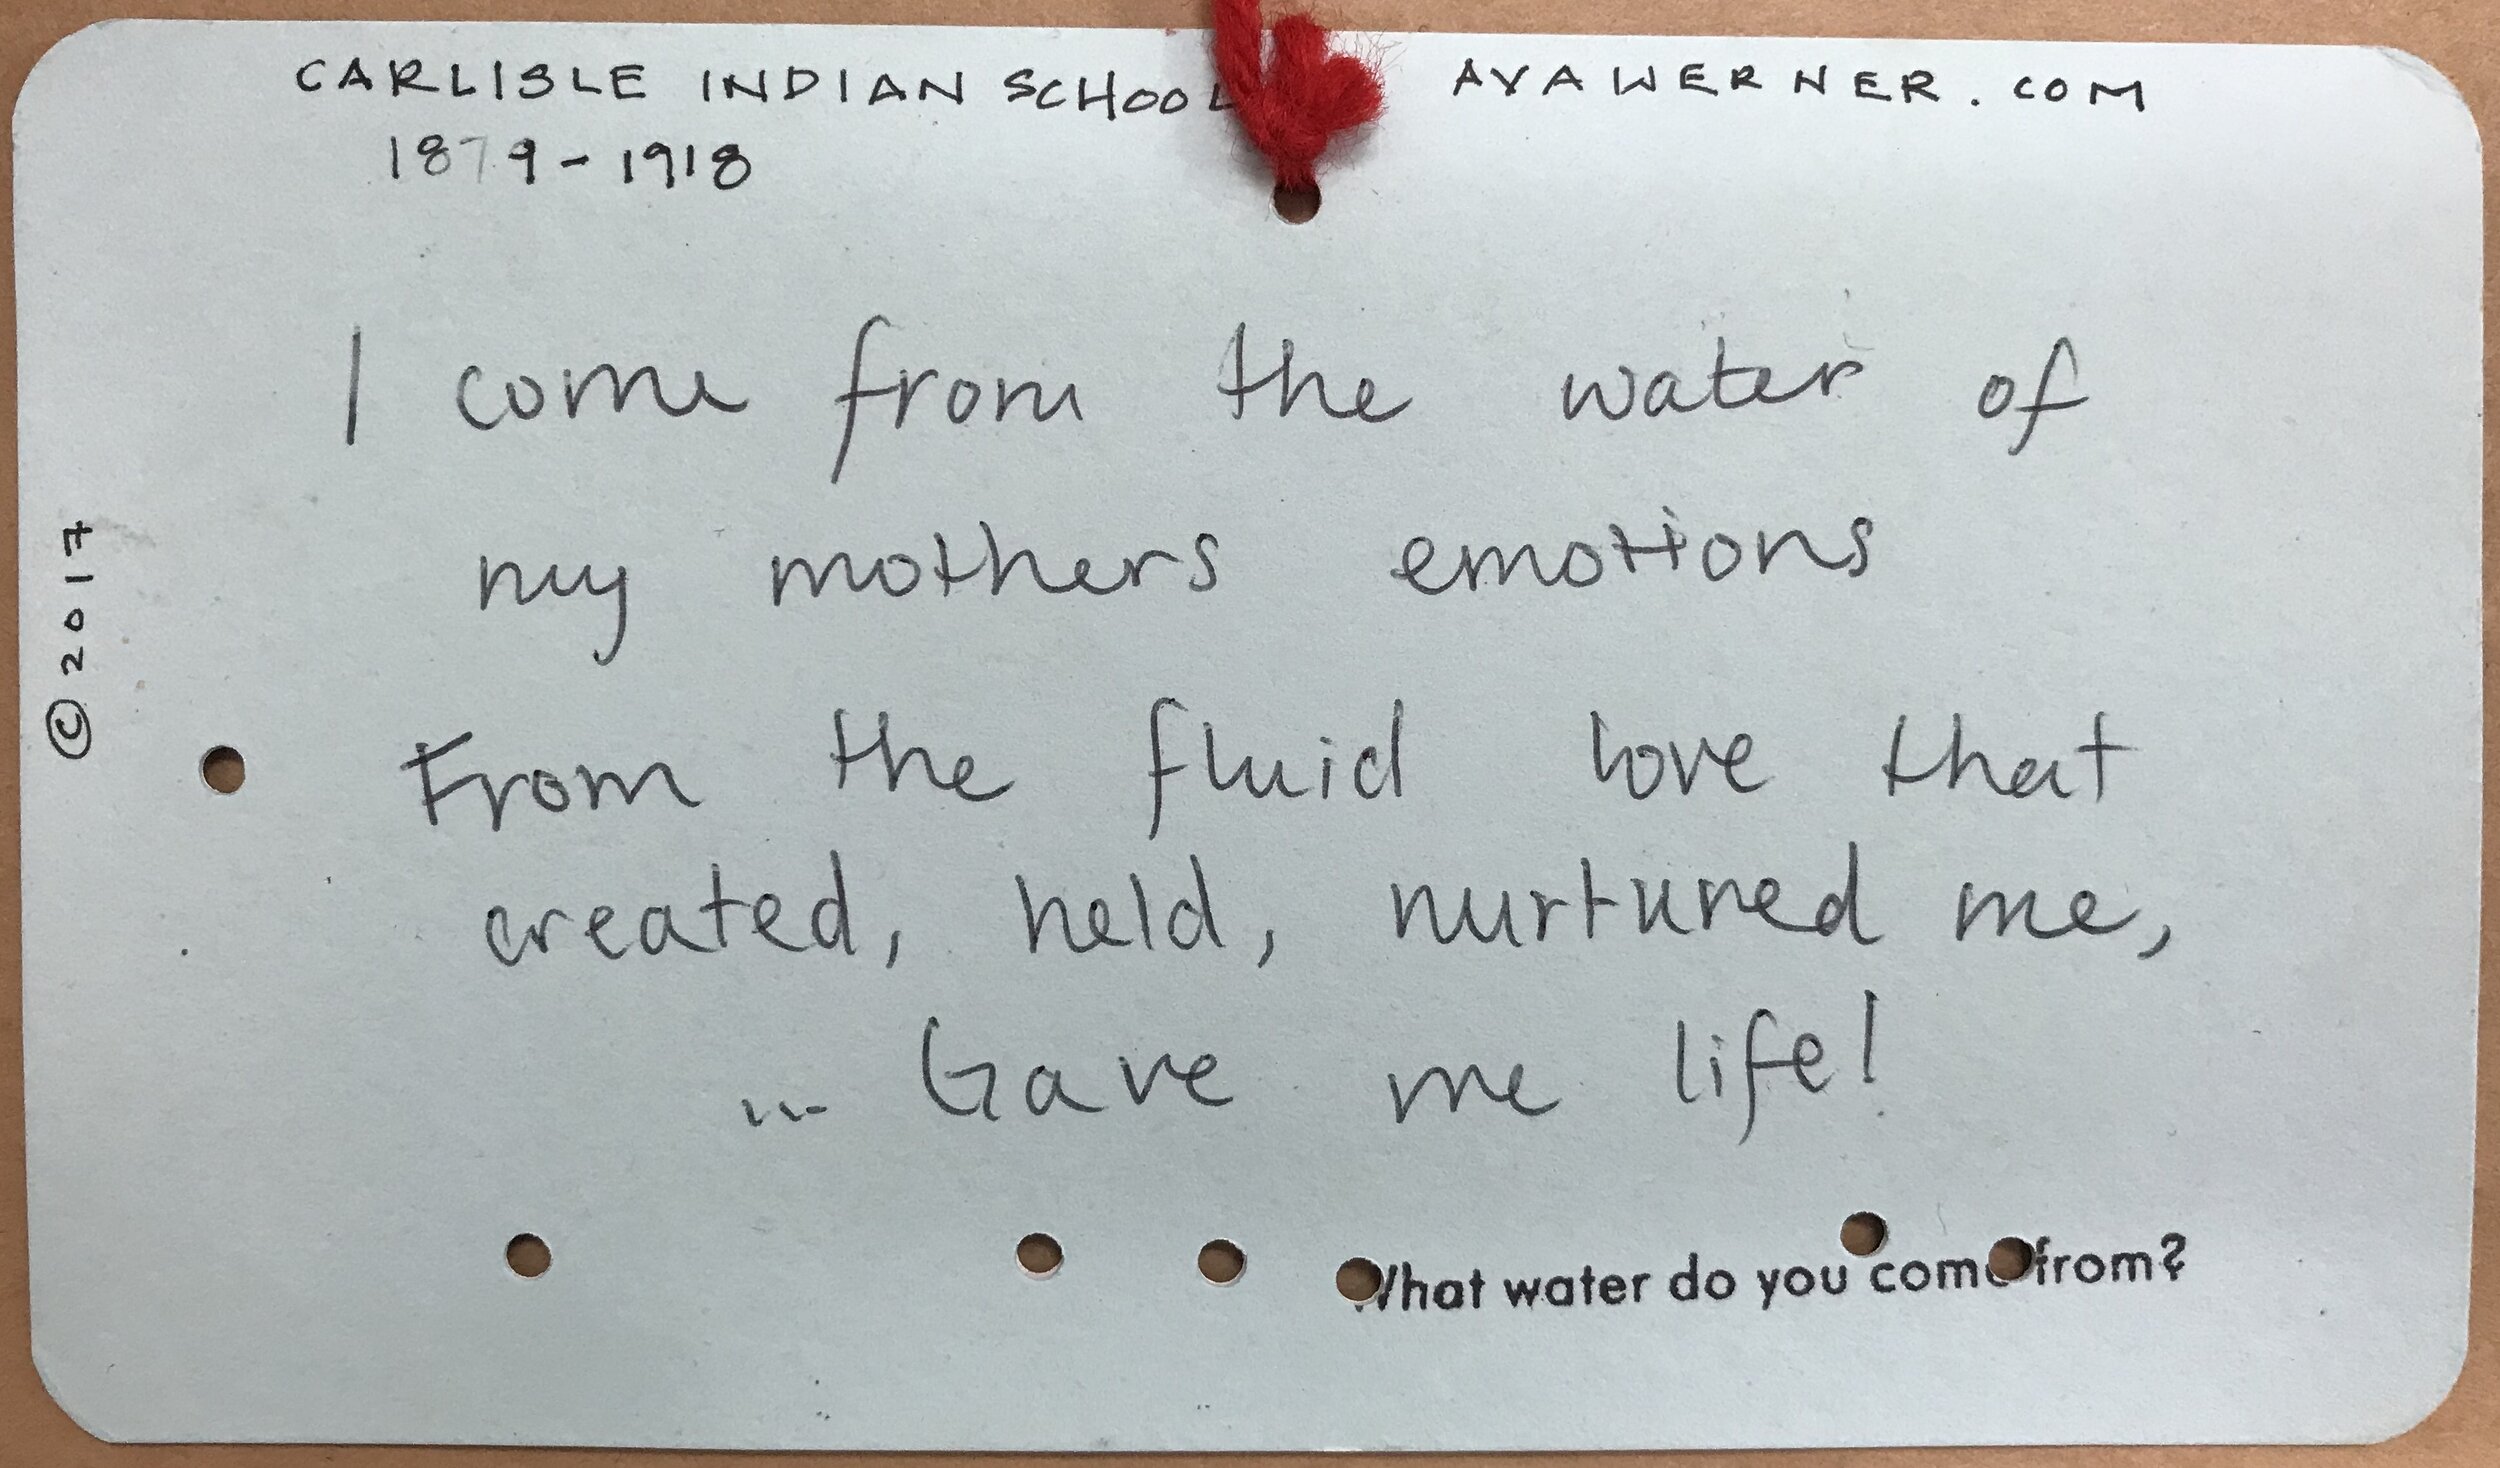 CARLISLE INDIAN SCHOOL AYAWERNER.COM
1879-1918
©2017
I come from the water of
my mothers emotions
From the fluid love that
created, held, nurtured me,
... Gave me life!
What water do you come from?